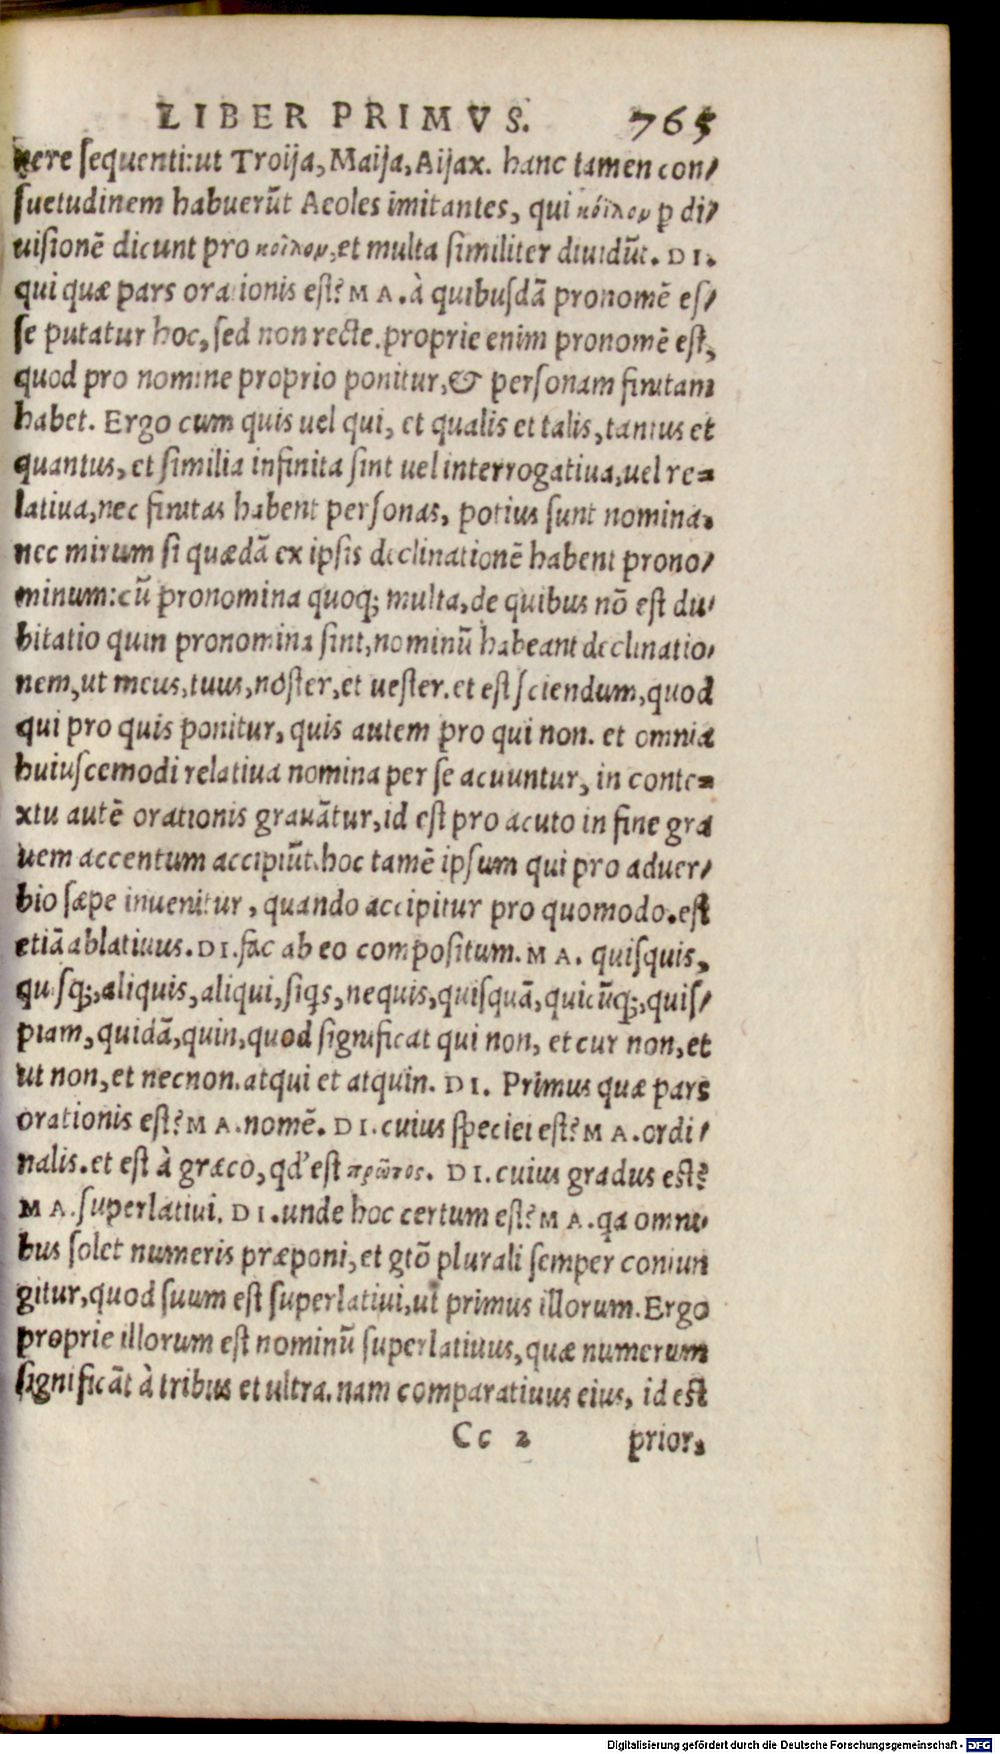 LIBER PRIMVS. 765
nere sequenti: ut Troija, Maija, Aijax. hanc tamen con/
suetudinem habuerūt Aeoles imitantes, qui κόϊλον ꝑ di/
uisionē dicunt pro κοῖλον, et multa similiter diuidūt. DI.
qui quæ pars orationis est? MA. à quibusdā pronomē es/
se putatur hoc, sed non recte. proprie enim pronomē est,
quod pro nomine proprio ponitur, & personam finitam
habet. Ergo cum quis uel qui, et qualis et talis, tantus et
quantus, et similia infinita sint uel interrogatiua, uel re=
latiua, nec finitas habent personas, potius sunt nomina.
nec mirum si quædā ex ipsis declinationē habent prono/
minum: cū pronomina quoq; multa, de quibus nō est du/
bitatio quin pronomina sint, nominū habeant declinatio/
nem, ut meus, tuus, noster, et uester. et est sciendum, quod
qui pro quis ponitur, quis autem pro qui non. et omnia
huiuscemodi relatiua nomina per se acuuntur, in conte=
xtu autē orationis grauātur, id est pro acuto in fine gra
uem accentum accipiūt. hoc tamē ipsum qui pro aduer/
bio sæpe inuenitur, quando accipitur pro quomodo. est
etiā ablatiuus. DI. fac ab eo compositum. MA. quisquis,
quisq;, aliquis, aliqui, siqs, nequis, quisquā, quicūq;, quis/
piam, quidā, quin, quod significat qui non, et cur non, et
ut non, et necnon. atqui et atquin. DI. Primus quæ pars
orationis est? MA. nomē. DI. cuius speciei est? MA. ordi/
nalis. et est à græco, qd' est πρῶτος. DI. cuius gradus est?
MA. superlatiui. DI. unde hoc certum est? MA. qa omni/
bus solet numeris præponi, et gtō plurali semper coniun
gitur, quod suum est superlatiui, ut primus illorum. Ergo
proprie illorum est nominū superlatiuus, quæ numerum
significāt à tribus et ultra. nam comparatiuus eius, id est
Cc 2 prior,
Digitalisierung gefördert durch die Deutsche Forschungsgemeinschaft - DFG